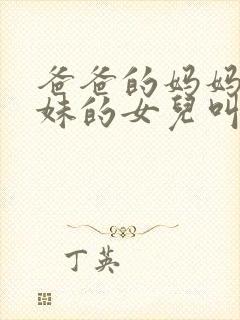 爸爸的妈妈
妹的女兒叫
丁英